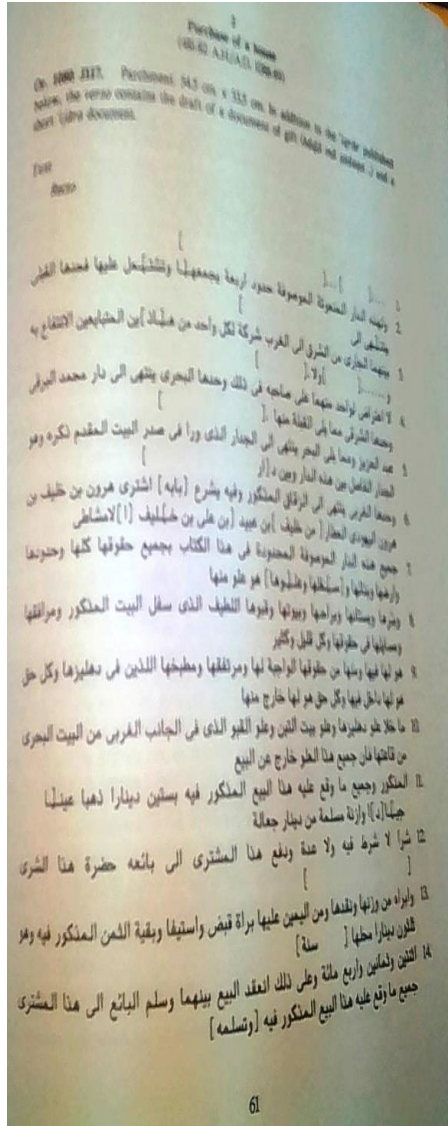 2
Purchase of a house
Or. 1080 J117. Parchment. 54.5 cm. x 33.5 cm. In addition to the text published
below, the verso contains the draft of a document of gift and a
short document.
Text
Recto
1 [ ]...[ ]
2 وهذه الدار المنعوتة الموصوفة حدود اربعة يجمعهـ[ـا وتشتـ]ـمل عليها فحدها القبلى
ينتهى الى [ ]
3 بينهما الجارى من الشرق الى الغرب شركة لكل واحد من هـ[ـاذ]ين المتبايعين الانتفاع به
و.......[ ]ولا.[ ]
4 لا اعتراض لواحد منهما على صاحبه فى ذلك وحدها البحرى ينتهى الى دار محمد البرقى
وحدها الشرقى مما يلى القبلة منها .[ ]
5 عبد العزيز ومما يلى البحر ينتهى الى الجدار الذى ورا فى صدر البيت المقدم ذكره وهو
الجدار الفاصل بين هذه الدار وبين د[ار ]
6 وحدها الغربى ينتهى الى الزقاق المذكور وفيه يشرع [بابه] اشترى هرون بن خليف بن
هرون اليهودى العطار [من خليف ]بن عبيد [بن على بن خـ]ـليف [ا]لامشاطى
7 جميع هذه الدار الموصوفة المحدودة فى هذا الكتاب بجميع حقوقها كلها وحدودها
وارضها وبنائها و[سـ]ـفلها وعلـ[ـوها] هو علو منها
8 وبئرها وبستانها وبراحها وبيوتها وقبوها اللطيف الذى سفل البيت المذكور ومرافقها
ومسايلها فى حقوقها وكل قليل وكثير
9 هو لها فيها ومنها من حقوقها الواجبة لها ومرتفقها ومطبخها اللذين فى دهليزها وكل حق
هو لها داخل فيها وكل حق هو لها خارج منها
10 ما خلا علو دهليزها وعلو بيت التبن وعلو القبو الذى فى الجانب الغربى من البيت البحرى
من قاعتها فان جميع هذا العلو خارج عن البيع
11 المذكور وجميع ما وقع عليه هذا البيع المذكور فيه بستين دينارا ذهبا عينـ[ـا
جيـ]ـا[د]ا وازنة مسلمة من دينار جعالة
12 شرا لا شرط فيه ولا عدة ودفع هذا المشترى الى بائعه حضرة هذا الشرى
[ ]
13 وابراه من وزنها ونقدها ومن اليمين عليها براة قبض واستيفا وبقية الثمن المذكور فيه وهو
ثلثون دينارا محلها [ سنة]
14 اثنتين وثمانين واربع مائة وعلى ذلك انعقد البيع بينهما وسلم البائع الى هذا المشترى
جميع ما وقع عليه هذا البيع المذكور فيه [وتسلمه]
61